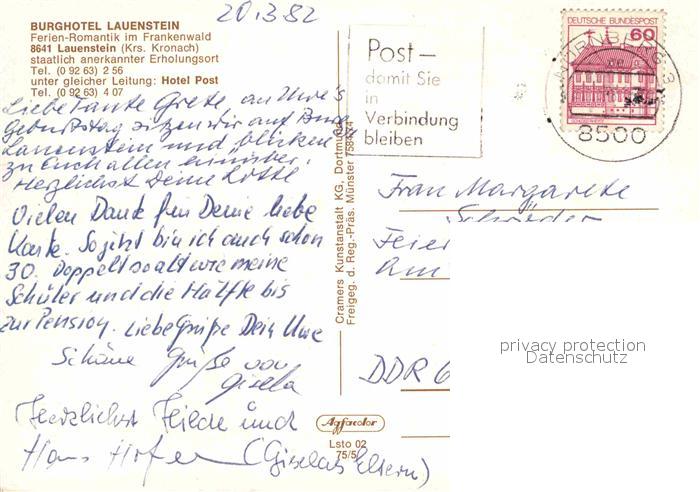 20.3.82
BURGHOTEL LAUENSTEIN
Ferien-Romantik im Frankenwald
8641 Lauenstein (Krs. Kronach)
staatlich anerkannter Erholungsort
Tel. (0 92 63) 2 56
unter gleicher Leitung: Hotel Post
Tel. (0 92 63) 4 07
Liebe Tante Grete, an Uwe's
Geburtstag sitzen wir auf Burg
Lauenstein und "blinken"
zu Euch allen hinüber.
Herzlichst Deine Lotte
Vielen Dank für Deine liebe
Karte. So jetzt bin ich auch schon
30. Doppelt so alt wie meine
Schüler und die Hälfte bis
zur Pension. Liebe Grüße Dein Uwe
Schöne Grüße von
Gisela
Herzlichst Hilde und
Hans Hofer (Giselas Eltern)
Cramers Kunstanstalt KG, Dortmund
Freigeg. d. Reg.-Präs. Münster
Post –
damit Sie
in
Verbindung
bleiben
DEUTSCHE BUNDESPOST
60
NÜRNBERG 3
8500
Frau Margarete
Schröder
Feier
Am
DDR 6
privacy protection
Datenschutz
Agfacolor
Lsto 02
75/5